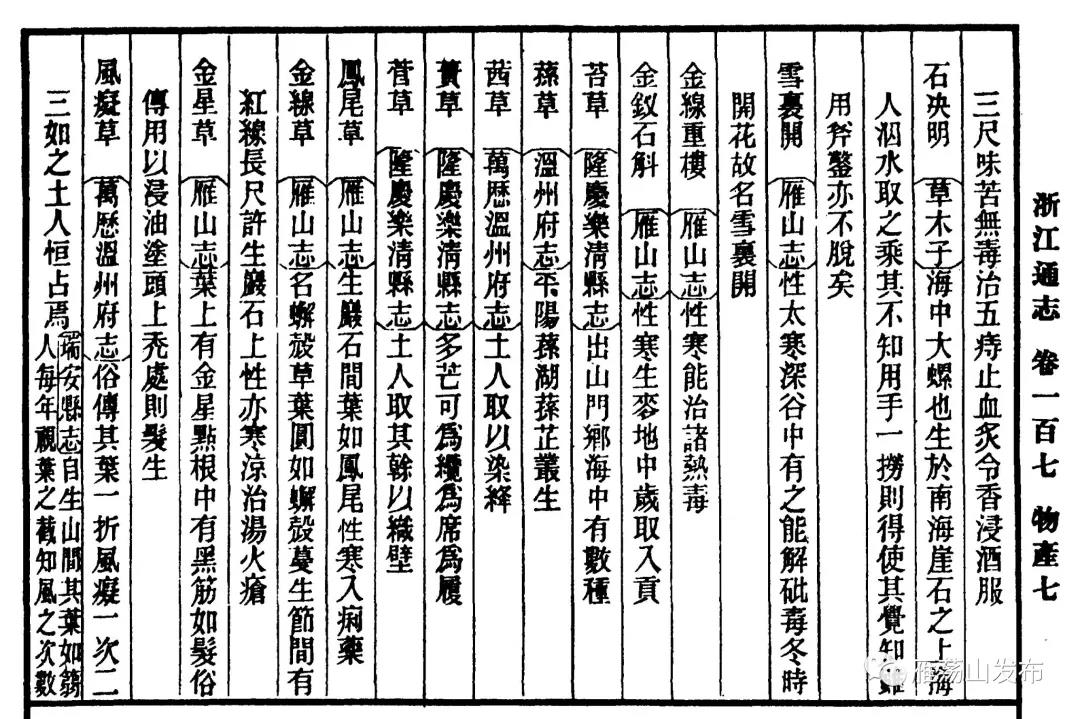 浙江通志 卷一百七 物產七
三尺味苦無毒治五痔止血炙令香浸酒服
石决明 草木子海中大螺也生於南海崖石之上海
人泅水取之乘其不知用手一撈則得使其覺知雖
用斧鑿亦不脫矣
雪裏開 雁山志性太寒深谷中有之能解砒毒冬時
開花故名雪裏開
金線重樓 雁山志性寒能治諸熱毒
金釵石斛 雁山志性寒生麥地中歲取入貢
苔草 隆慶樂清縣志出山門鄉海中有數種
蓀草 溫州府志平陽蓀湖蓀芷叢生
茜草 萬歷溫州府志土人取以染絳
蕢草 隆慶樂清縣志多芒可為纜為席為履
菅草 隆慶樂清縣志土人取其幹以織壁
鳳尾草 雁山志生巖石間葉如鳳尾性寒入痢藥
金線草 雁山志名蠏殼草葉圓如蠏殼蔓生節間有
紅線長尺許生巖石上性亦寒涼治湯火瘡
金星草 雁山志葉上有金星點根中有黑筋如髮俗
傳用以浸油塗頭上禿處則髮生
風癡草 萬歷溫州府志俗傳其葉一折風癡一次二
三如之土人恒占焉 瑞安縣志自生山間其葉如篛
人每年視葉之截知風之次數
雁荡山发布